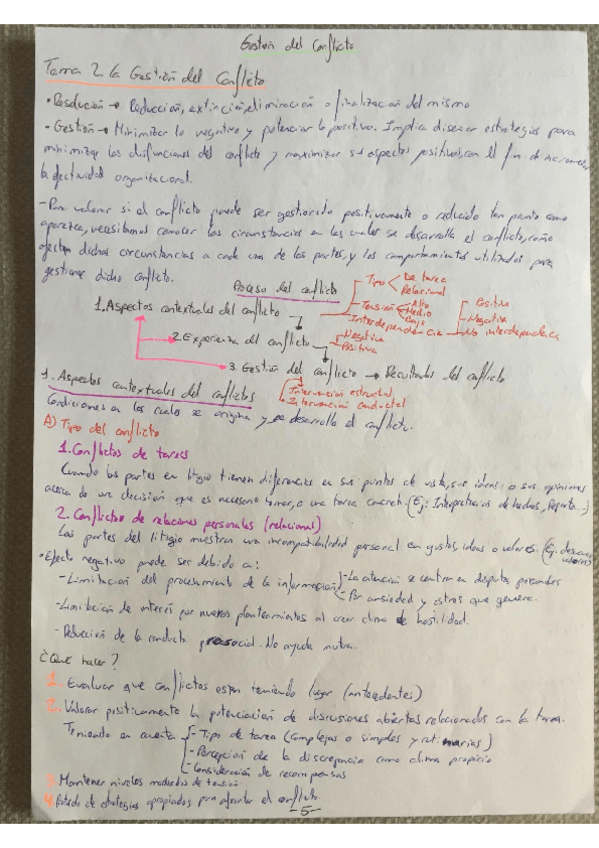 Gestión del Conflicto
Tema 2. La Gestión del Conflicto
• Resolución → Reducción, extinción, eliminación o finalización del mismo
- Gestión → Minimizar lo negativo y potenciar lo positivo. Implica diseñar estrategias para
minimizar las disfunciones del conflicto y maximizar sus aspectos positivos, con el fin de incrementar
la efectividad organizacional.
- Para valorar si el conflicto puede ser gestionado positivamente o reducido tan pronto como
aparezca, necesitamos conocer las circunstancias en las cuales se desarrolla el conflicto, cómo
afectan dichas circunstancias a cada una de las partes, y los comportamientos utilizados para
gestionar dicho conflicto.
Proceso del conflicto
Tipo
De tarea
Relacional
1. Aspectos contextuales del conflicto
Tensión
Alto
Medio
Bajo
Interdependencia
Positiva
Negativa
No interdependencia
2. Experiencia del conflicto
Negativa
Positiva
3. Gestión del conflicto → Resultados del conflicto
Intervención estructural
Intervención conductual
1. Aspectos contextuales del conflictos
Condiciones en las cuales se origina y se desarrolla el conflicto.
A) Tipo del conflicto
1. Conflictos de tareas
Cuando las partes en litigio tienen diferencias en sus puntos de vista, sus ideas o sus opiniones
acerca de una decisión que es necesario tomar, o una tarea concreta. (Ej: Interpretación de hechos, Reparto...)
2. Conflictos de relaciones personales (relacional)
Las partes del litigio muestran una incompatibilidad personal en gustos, ideas o valores. (Ej:
valores)
• Efecto negativo puede ser debido a:
- Limitación del procesamiento de la información
- La atención se centra en disputas personales
- Por ansiedad y estrés que genera.
- Limitación de interés por nuevos planteamientos al crear clima de hostilidad.
- Reducción de la conducta prosocial. No ayuda mutua.
¿Qué hacer?
1. Evaluar que conflictos están teniendo lugar (antecedentes)
2. Valorar positivamente la potenciación de discusiones abiertas relacionadas con la tarea.
Teniendo en cuenta
- Tipo de tarea (complejas o simples y rutinarias)
- Percepción de la discrepancia como clima propicio
- Consideración de recompensas
3. Mantener niveles moderados de tensión
4. de estrategias apropiadas para afrontar el conflicto
-5-